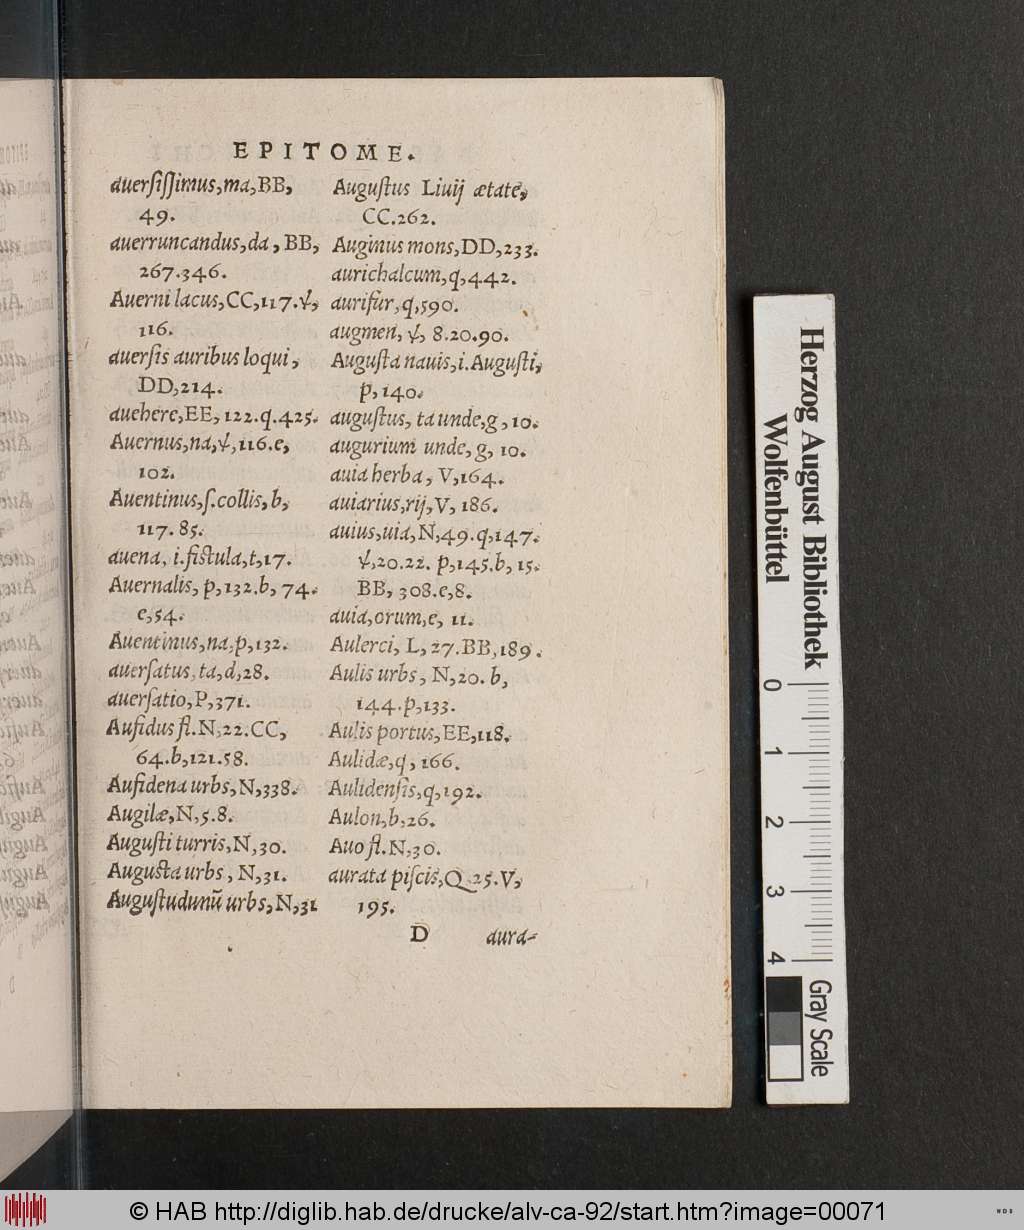 EPITOME.
auerſiſſimus,ma,BB,
49.
auerruncandus,da, BB,
267.346.
Auerni lacus,CC,117.ψ,
116.
auerſis auribus loqui,
DD,214.
auehere,EE,122.q.425.
Auernus,na,ψ,116.e,
102.
Auentinus,ſ.collis,b,
117.85.
auena, i.fiſtula,t,17.
Auernalis, p,132.b,74.
e,54.
Auentinus,na,p,132.
auerſatus,ta,d,28.
auerſatio,P,371.
Aufidus fl.N,22.CC,
64.b,121.58.
Aufidena urbs,N,338.
Augilæ,N,5.8.
Auguſti turris,N,30.
Auguſta urbs, N,31.
Auguſtudunũ urbs,N,31
Auguſtus Liuij ætate,
CC.262.
Auginus mons,DD,233.
aurichalcum,q,442.
aurifur,q,590.
augmen, ψ, 8.20.90.
Auguſta nauis,i.Auguſti,
p,140.
auguſtus, ta unde,g,10.
augurium unde, g, 10.
auia herba, V,164.
auiarius,rij,V, 186.
auius,uia,N,49.q,147.
ψ,20.22. p,145.b,15.
BB, 308.e,8.
auia,orum,e, 11.
Aulerci, L,27.BB,189.
Aulis urbs, N,20. b,
144.p,133.
Aulis portus,EE,118.
Aulidæ,q, 166.
Aulidenſis,q,192.
Aulon,b,26.
Auo fl.N,30.
aurata piſcis,Q 25.V,
195.
D aura-
Herzog August Bibliothek
Wolfenbüttel
0 1 2 3 4
Gray Scale
© HAB http://diglib.hab.de/drucke/alv-ca-92/start.htm?image=00071